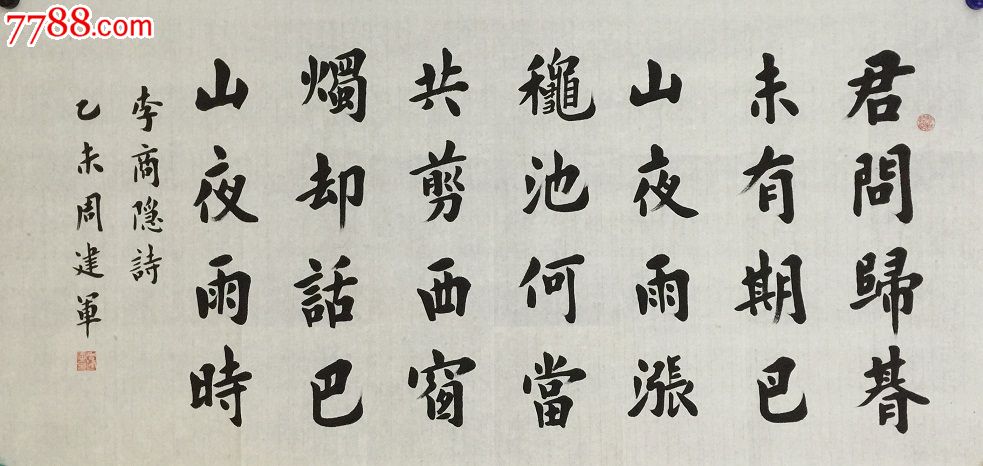 7788.com
君問歸朞
未有期巴
山夜雨漲
龝池何當
共剪西窗
燭却話巴
山夜雨時
李商隐詩
乙未周建軍